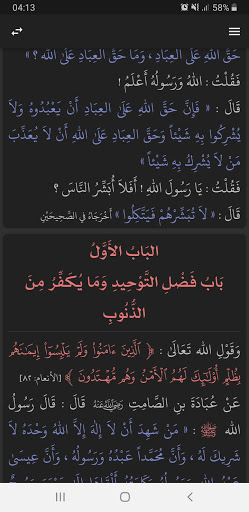 04:13
58%
حَقُّ اللهِ عَلَى العِبَادِ ، وَمَا حَقُّ العِبَادِ عَلَى اللهِ ؟ »
فَقُلْتُ : اللهُ وَرَسُولُهُ أَعْلَمُ !
قَالَ : « فَإِنَّ حَقَّ اللهِ عَلَى العِبَادِ أَنْ يَعْبُدُوهُ وَلَا
يُشْرِكُوا بِهِ شَيْئاً وَحَقَّ العِبَادِ عَلَى اللهِ أَنْ لَا يُعَذِّبَ
مَنْ لَا يُشْرِكُ بِهِ شَيْئاً »
فَقُلْتُ : يَا رَسُولَ اللهِ ! أَفَلَا أُبَشِّرُ النَّاسَ ؟
قَالَ : « لَا تُبَشِّرْهُمْ فَيَتَّكِلُوا » أَخْرَجَاهُ فِي الصَّحِيحَيْنِ
البَابُ الأَوَّلُ
بَابُ فَضْلِ التَّوْحِيدِ وَمَا يُكَفِّرُ مِنَ
الذُّنُوبِ
وَقَوْلِ اللهِ تَعَالَى : ﴿ الَّذِينَ ءَامَنُوا وَلَمْ يَلْبِسُوا إِيمَـٰنَهُم
بِظُلْمٍ أُوْلَـٰٓئِكَ لَهُمُ الْأَمْنُ وَهُم مُّهْتَدُونَ ﴾ [الأنعام: ٨٢]
عَنْ عُبَادَةَ بنِ الصَّامِتِ رَضِيَ اللهُ عَنْهُ قَالَ : قَالَ رَسُولُ
اللهِ ﷺ : « مَنْ شَهِدَ أَنْ لَا إِلَهَ إِلَّا اللهُ وَحْدَهُ لَا
شَرِيكَ لَهُ ، وَأَنَّ مُحَمَّداً عَبْدُهُ وَرَسُولُهُ ، وَأَنَّ عِيسَى